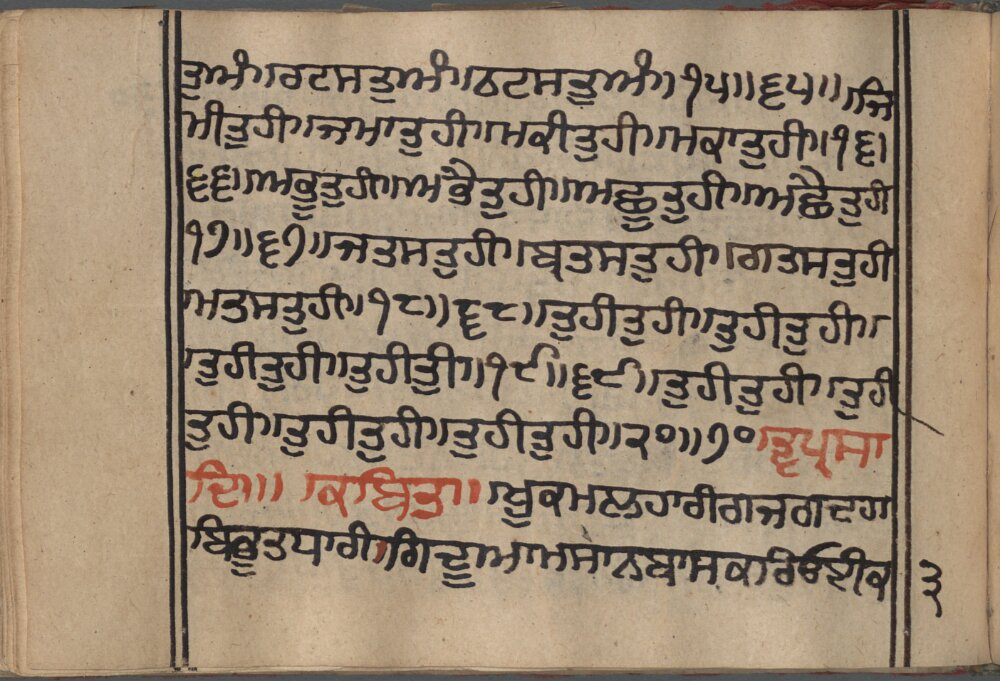 ਤੁਅੰ॥ਰਟਸਤੁਅੰ॥ਠਟਸਤੁਅੰ॥੧੫॥੬੫॥॥ਜਿ
ਮੀਤੁਹੀ॥ਜਮਾਤੁਹੀ॥ਮਕੀਤੁਹੀ॥ਮਕਾਤੁਹੀ॥੧੬॥
੬੬॥ਅਭੂਤੁਹੀ॥ਅਭੈਤੁਹੀ॥ਅਛੂਤੁਹੀ॥ਅਛੈਤੁਹੀ
੧੭॥੬੭॥ਜਤਸਤੁਹੀ॥ਬ੍ਰਤਸਤੁਹੀ॥ਗਤਸਤੁਹੀ
ਮਤਸਤੁਹੀ॥੧੮॥੬੮॥ਤੁਹੀਤੁਹੀ॥ਤੁਹੀਤੁਹੀ॥
ਤੁਹੀਤੁਹੀ॥ਤੁਹੀਤੁੀ॥੧੯॥੬੯॥ਤੁਹੀਤੁਹੀ॥ਤੁਹੀ
ਤੁਹੀ॥ਤੁਹੀਤੁਹੀ॥ਤੁਹੀਤੁਹੀ॥੨੦॥੭੦॥ਤ੍ਵਪ੍ਰਸਾ
ਦਿ॥॥ ਕਬਿਤ॥ਖੂਕਮਲਹਾਰੀਗਜਗਦਹਾ
ਬਿਭੂਤਧਾਰੀ॥ਗਿਦੂਆਮਸਾਨਬਾਸਕਰਿਓਈਕ
੩